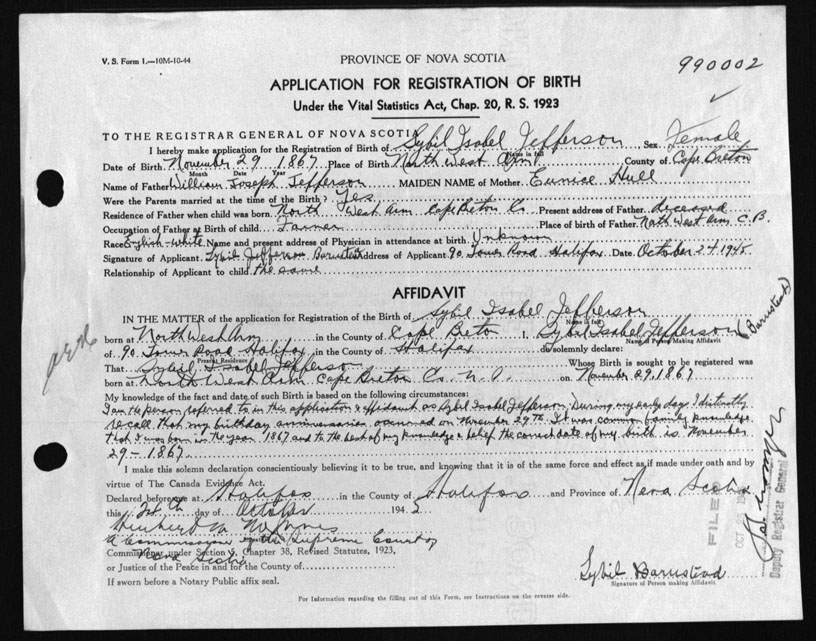 V. S. Form 1.—10M-10-44
PROVINCE OF NOVA SCOTIA
990002
APPLICATION FOR REGISTRATION OF BIRTH
Under the Vital Statistics Act, Chap. 20, R. S. 1923
TO THE REGISTRAR GENERAL OF NOVA SCOTIA
I hereby make application for the Registration of Birth of Sybil Isabel Jefferson Sex Female
Name in full
Date of Birth November 29 1867 Place of Birth North West Arm County of Cape Breton
Month Date Year
Name of Father William Joseph Jefferson MAIDEN NAME of Mother Eunice Hull
Were the Parents married at the time of the Birth? Yes
Residence of Father when child was born North West Arm Cape Breton Co Present address of Father deceased
Occupation of Father at Birth of child Farmer Place of birth of Father North West Arm C.B.
Race English-White Name and present address of Physician in attendance at birth Unknown
Signature of Applicant Sybil Jefferson Barnstead Address of Applicant 90 Tower Road Halifax Date October 24 1945
Relationship of Applicant to child the same
AFFIDAVIT
IN THE MATTER of the application for Registration of the Birth of Sybil Isabel Jefferson
Name in full
born at North West Arm in the County of Cape Breton I, Sybil Isabel Jefferson (Barnstead)
Name of Person Making Affidavit
of 90 Tower Road Halifax in the County of Halifax do solemnly declare:
Present Residence
That Sybil Isabel Jefferson Whose Birth is sought to be registered was
born at North West Arm Cape Breton Co. N.S. on November 29, 1867
My knowledge of the fact and date of such Birth is based on the following circumstances:
I am the person referred to in this application & affidavit as Sybil Isabel Jefferson. During my early day I distinctly
recall that my birthday anniversaries occurred on November 29th. It was common family knowledge
that I was born in the year 1867 and to the best of my knowledge & belief the correct date of my birth is November
29-1867.
I make this solemn declaration conscientiously believing it to be true, and knowing that it is of the same force and effect as if made under oath and by
virtue of The Canada Evidence Act.
Declared before at Halifax in the County of Halifax and Province of Nova Scotia
this day of October 194
A Commissioner of the Supreme Court of
Nova Scotia
Commissioner under Section 5, Chapter 38, Revised Statutes, 1923,
or Justice of the Peace in and for the County of
If sworn before a Notary Public affix seal.
Sybil Barnstead
Signature of Person making Affidavit
For Information regarding the filling out of this Form, see Instructions on the reverse side.
FILED
OCT
Deputy Registrar General